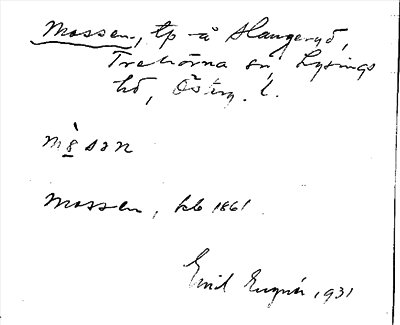 Mossen, tp å Slangeryd,
Trehörna sn, Lysings
hd, Österg. l.
mòsan
Mossen, kb 1861
Emil 1931